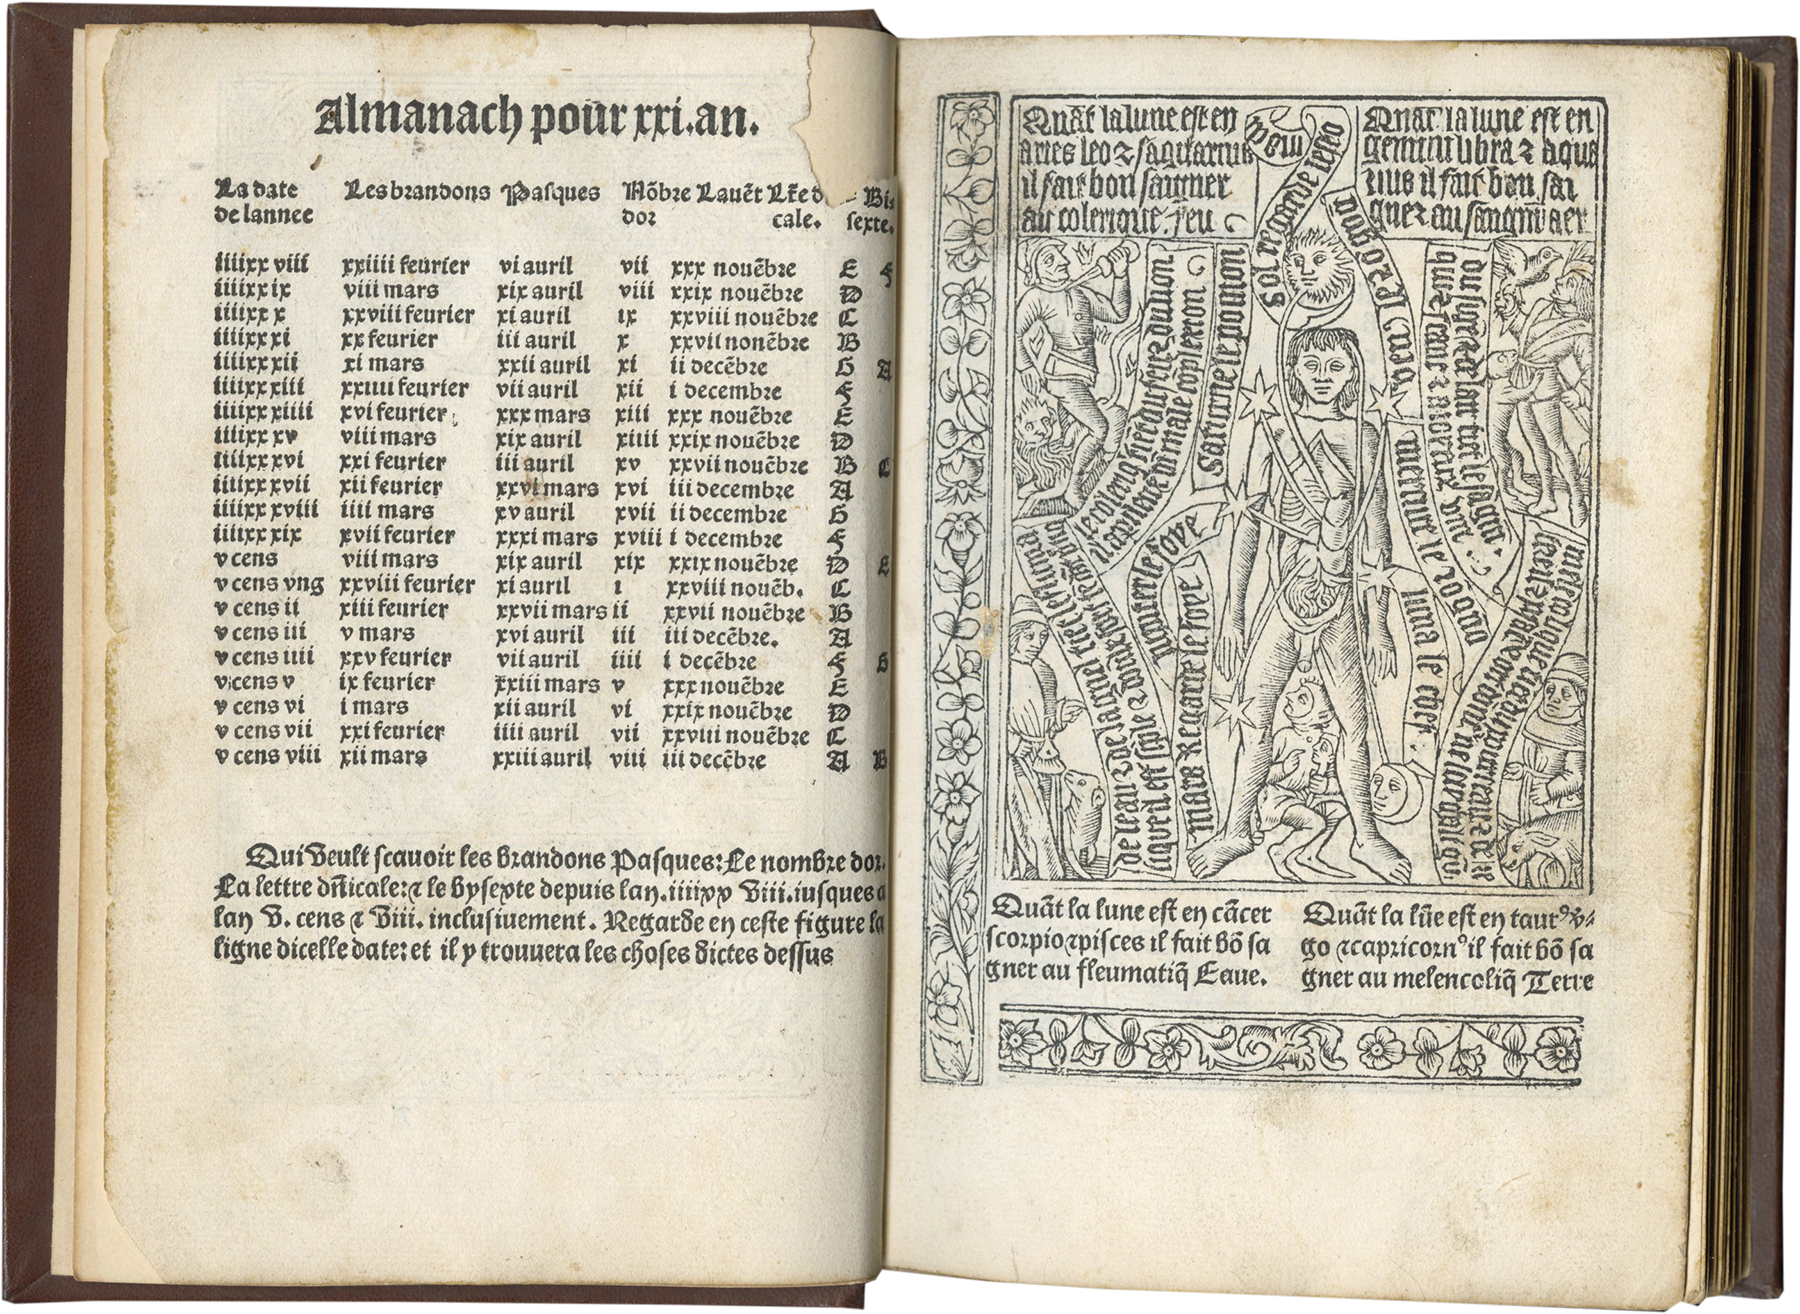 Almanach pour xxi.an.
La date Les brandons Pasques Nõbre Lauẽt Lr̃e d Bi
de lannee dor cale. sexte.
iiiixx viii xxiiii feurier vi auril vii xxx nouẽbre E F
iiiixx ix viii mars xix auril viii xxix nouẽbre D
iiiixx x xxviii feurier xi auril ix xxviii nouẽbre C
iiiixx xi xx feurier iii auril x xxvii nonẽbre B
iiiixx xii xi mars xxii auril xi ii decẽbre G A
iiiixx xiii xxiiii feurier vii auril xii i decembre F
iiiixx xiiii xvi feurier xxx mars xiii xxx nouẽbre E
iiiixx xv viii mars xix auril xiiii xxix nouẽbre D
iiiixx xvi xxi feurier iii auril xv xxvii nouẽbre B C
iiiixx xvii xii feurier xxvi mars xvi iii decembre A
iiiixx xviii iiii mars xv auril xvii ii decembre G
iiiixx xix xvii feurier xxxi mars xviii i decembre F
v cens viii mars xix auril xix xxix nouẽbre D E
v cens vng xxviii feurier xi auril i xxviii nouẽb. C
v cens ii xiii feurier xxvii mars ii xxvii nouẽbre B
v cens iii v mars xvi auril iii iii decẽbre. A
v cens iiii xxv feurier vii auril iiii i decẽbre F G
v cens v ix feurier xxiii mars v xxx nouẽbre E
v cens vi i mars xii auril vi xxix nouẽbre D
v cens vii xxi feurier iiii auril vii xxviii nouẽbre C
v cens viii xii mars xxiii auril viii iii decẽbre A B
Qui veult scauoir les brandons Pasques: Le nombre dor.
La lettre dñicale: ⁊ le bysexte depuis lan. iiiixx viii. iusques a
lan v. cens ⁊ viii. inclusiuement. Regarde en ceste figure la
ligne dicelle date: et il y trouuera les choses dictes dessus
Quãt la lune est en
aries leo ⁊ sagitarius
il fait bon saigner
au colerique. feu
Quãt la lune est en
gemini libra ⁊ aqua
rius il fait bon sai
gner au sanguĩ aer
Sol regarde lesto
mac
Saturne le pomon
Jupiter le foye
Mars Regarde le
venus les rognõs
mercure le rognõ
luna le chief
Quãt la lune est en cãcer
scorpio ⁊ pisces il fait bõ sa
gner au fleumatiq̃ Eaue.
Quãt la lũe est en taurꝰ v̾⸗
go ⁊ capricornꝰ il fait bõ sa
gner au melencoliq̃ Terre